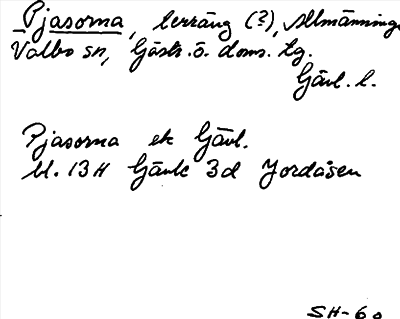 Pjasorna, terräng (?), Allmänninge
Valbo sn, Gästr. ö. doms. tg.
Gävl. l.
Pjasorna ek Gävl.
bl. 13H Gävle 3d Jordåsen
SH-60